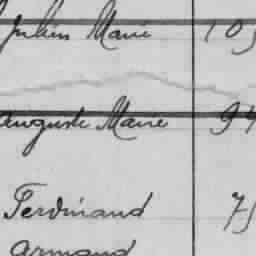 Julien Marie 105
Auguste Marie 94
Ferdinand 75
Armand